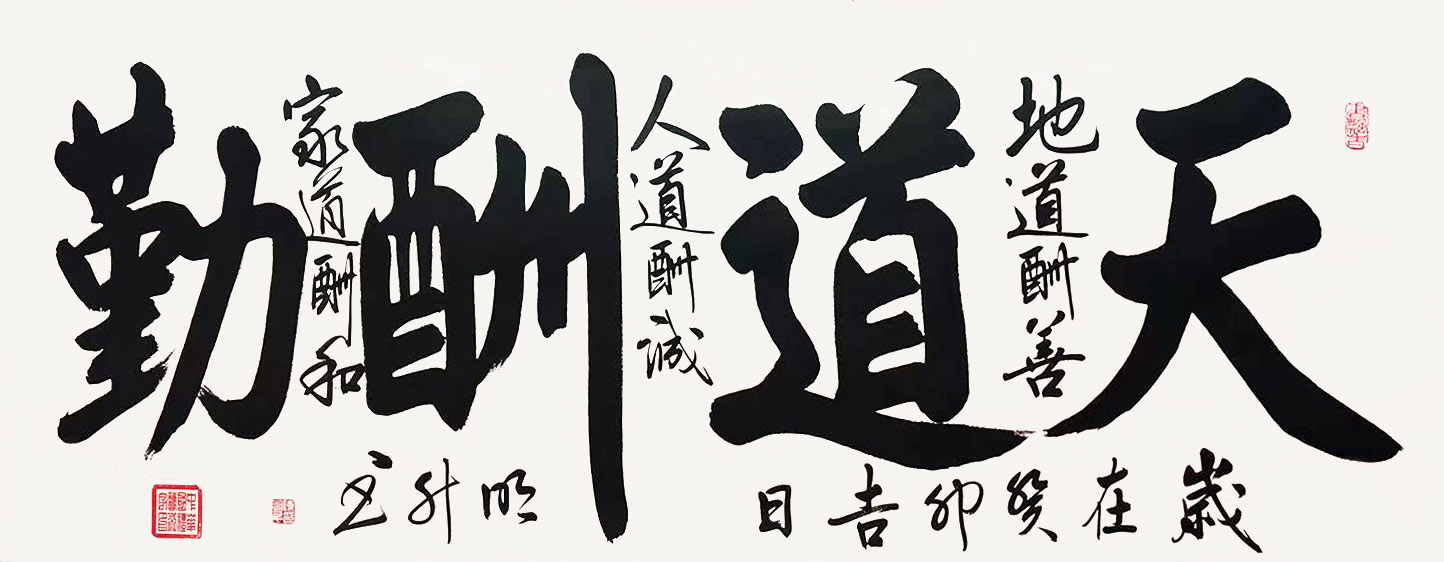 天道酬勤
地道酬善
人道酬诚
家道酬和
歲在癸卯吉日
明升书